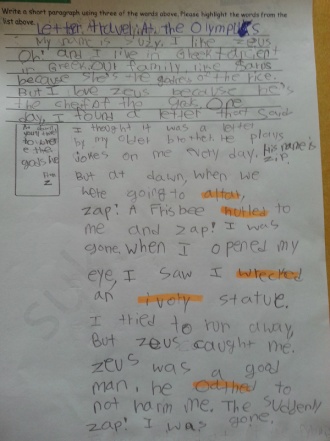 Write a short paragraph using three of the words above. Please highlight the words from the
list above.
Letter A travel: At the Olympics
My name is Suzy, I like zeus
Oh! and I live in
in Greek. Our family like
because she's the godes of the rice.
But I love zeus because he's
the chef of the Gods. One
day, I found a letter that said
At dawn,
z
I thought it was a letter
by my older brother he plays
jokes on me every day. His name is
z.i.p.
But at dawn, when we
were going to altar,
zap! A frisbee hurled to
me and zap! I was
gone. when I opened my
eye, I saw I wrecked
an ivoly statue.
I tried to run away,
But zeus caught me.
zeus was a good
man, he oathed to
not harm me. The suddenly
zap! I was gone.